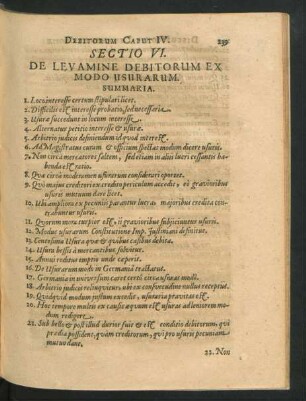 DEBITORUM CAPUT IV. 235
SECTIO VI.
DE LEVAMINE DEBITORUM EX
MODO USURARUM.
SUMMARIA.
1. Loco interesse certum stipulari licet.
2. Difficilis est interesse probatio, sed necessaria.
3. Usura succedunt in locum interesse.
4. Alternatur petitio interesse & usurae.
5. Arbitrio judicis definiendum id quod interest.
6. Ad Magistratus curam & officium spectat modum dicere usuris.
7. Non circa mercatores saltem, sed etiam in aliis lucri cessantis ha-
benda est ratio.
8. Qua circa moderamen usurarum consideret oportet.
9. Qui majori creditori ex credito periculum accedit, ei gravioribus
usuris mutuum dare licet.
10. Ubi amplior ex pecuniis paratur lucra majoribus credita
rantur usuris.
11. Quorum mora turpior est, ii gravioribus subjiciuntur usuris.
12. Modus usurarum Constitutione Imp. Justiniani definitus.
13. Centesima Usura quae & quibus casibus debita.
14. Usura bessis à mercatoribus
15. Annui reditus emptio unde coeperit.
16. De Usurarum modo in Germania
17. Germania in universum caret certi circa usuras modi.
18. Arbitrio judicis relinquitur, ubi ex consuetudine nullus receptus.
19. Quodquid modum justum excedit, usuraria pravitas est.
20. Hoc tempore multis ex causis aequum est usuras ad leniorem mo-
dum redigere.
21. Sub bello & post illud durior suit & est conditio debitorum, qui
praedia possident, quàm creditorum, qui pro usuris pecuniam
mutuo dant.
22. Non